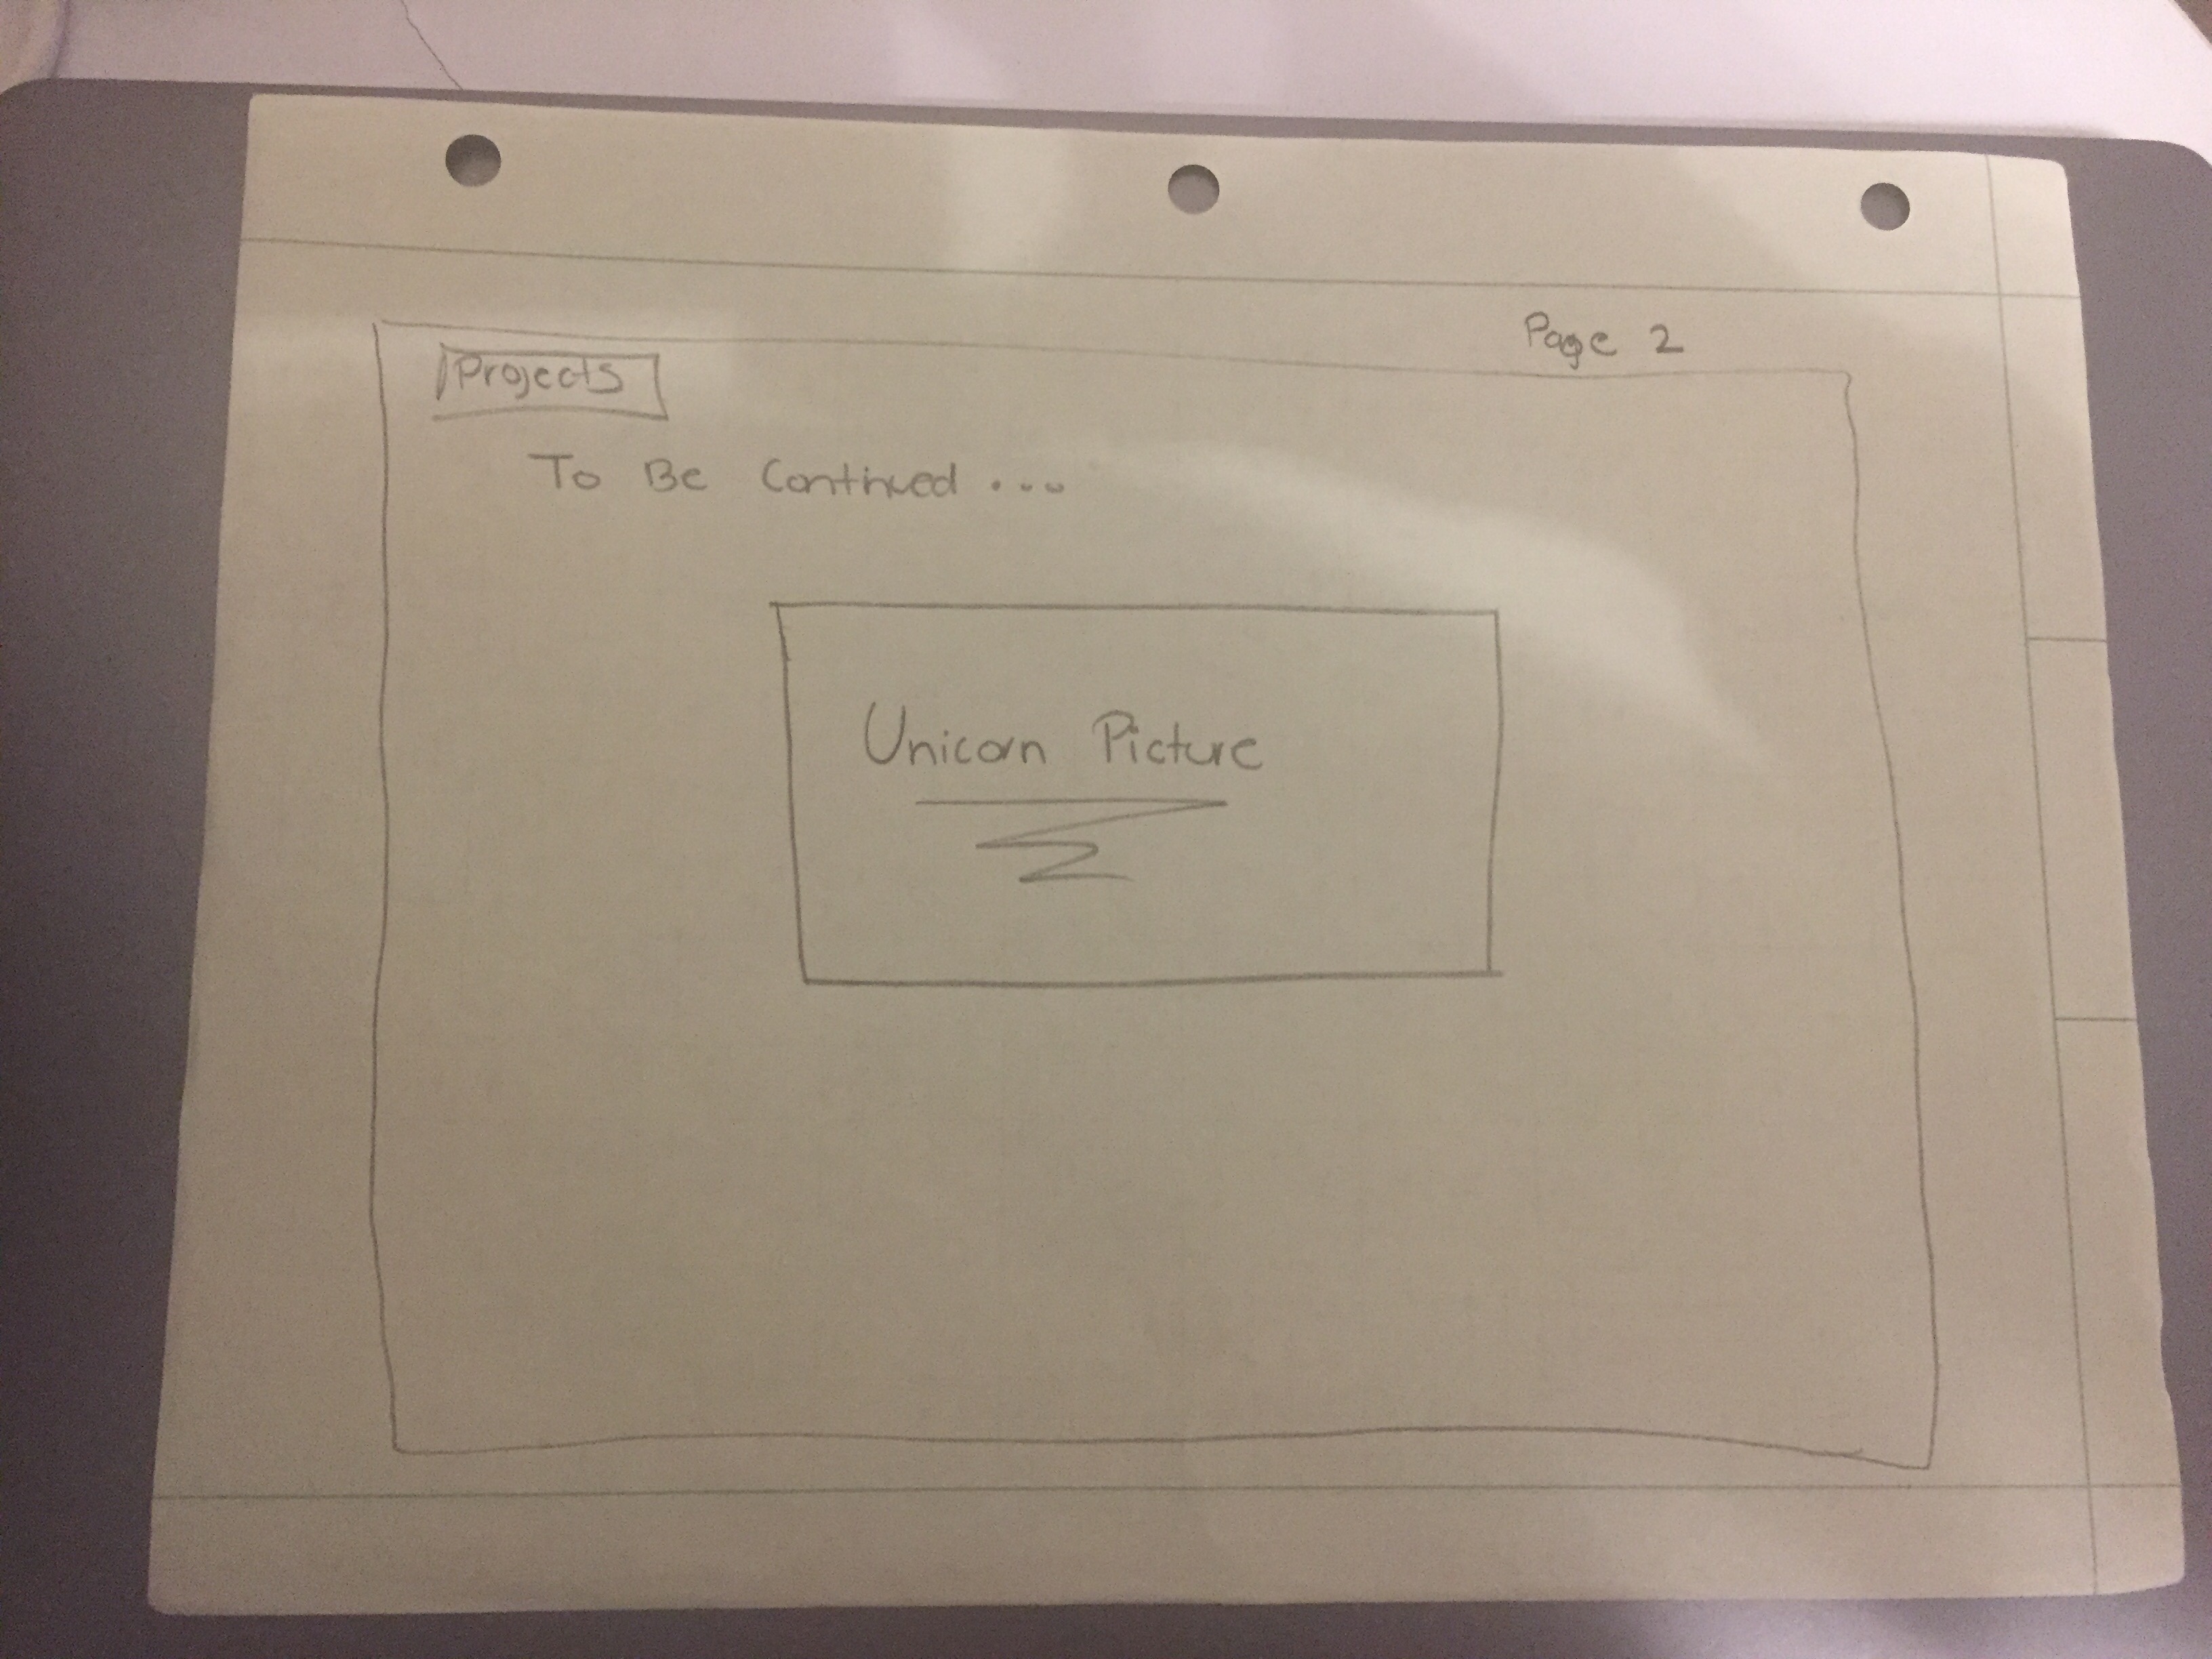 Page 2
Projects
To Be Continued ...
Unicorn Picture